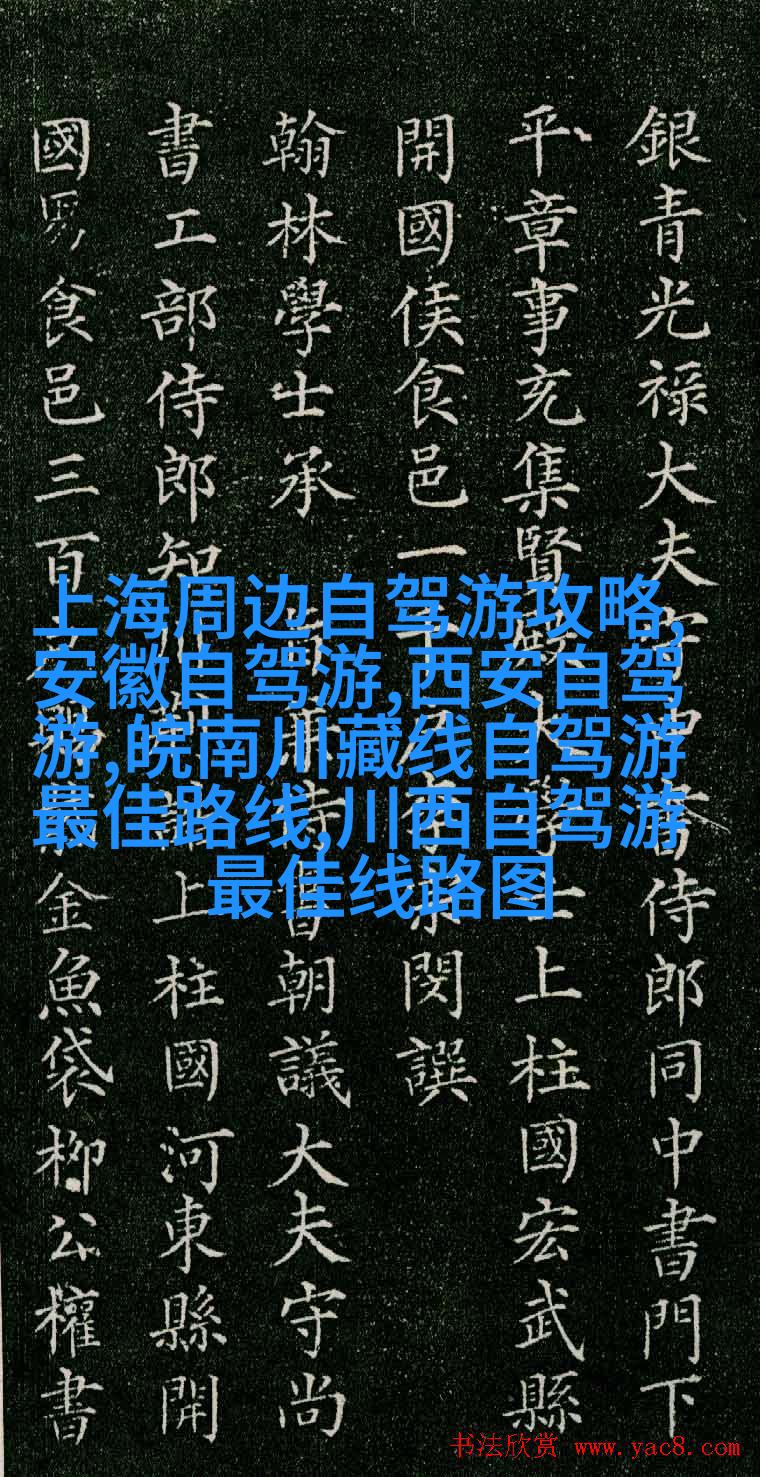 銀青光禄大夫侍郎同中書門下
平章事充集賢大士上柱國宏武縣
開國侯食邑一閔譔
翰林學士承朝議大夫守尚
書工部侍郎知上柱國河東縣開
國男食邑三百金魚袋柳公權書
上海周边自驾游攻略,
安徽自驾游,西安自驾
游,皖南川藏线自驾游
最佳路线,川西自驾游
最佳线路图
书法欣赏 www.yac8.com